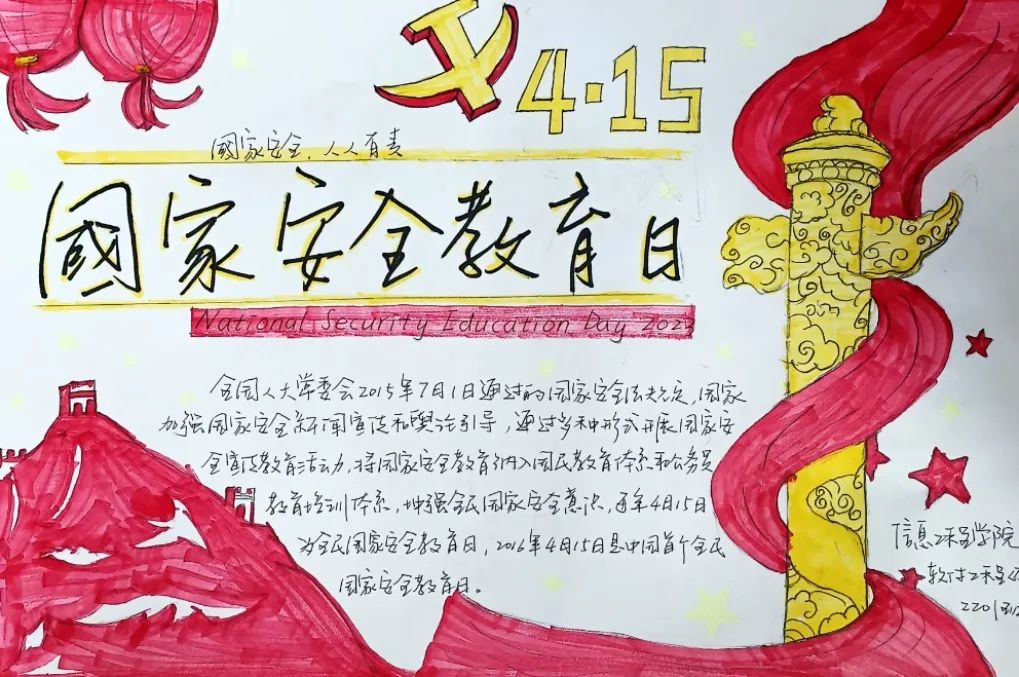 4·15
國家安全，人人有责
國家安全教育日
National Security Education Day 2023
全国人大常委会2015年7月1日通过的国家安全法规定，国家
加强国家安全新闻宣传和舆论引导，通过多种形式开展国家安
全宣传教育活动，将国家安全教育纳入国民教育体系和公务员
教育培训体系，增强全民国家安全意识，每年4月15日
为全民国家安全教育日，2016年4月15日是中国首个全民
国家安全教育日。
信息工程学院
软件工程
2201班